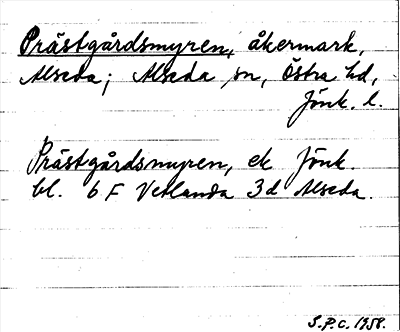 Prästgårdsmyren, åkermark,
Alseda; Alseda sn, Östra hd,
Jönk. l.
Prästgårdsmyren, ek Jönk.
bl. 6 F Vetlanda 3 d Alseda.
S.P.C. 1958.